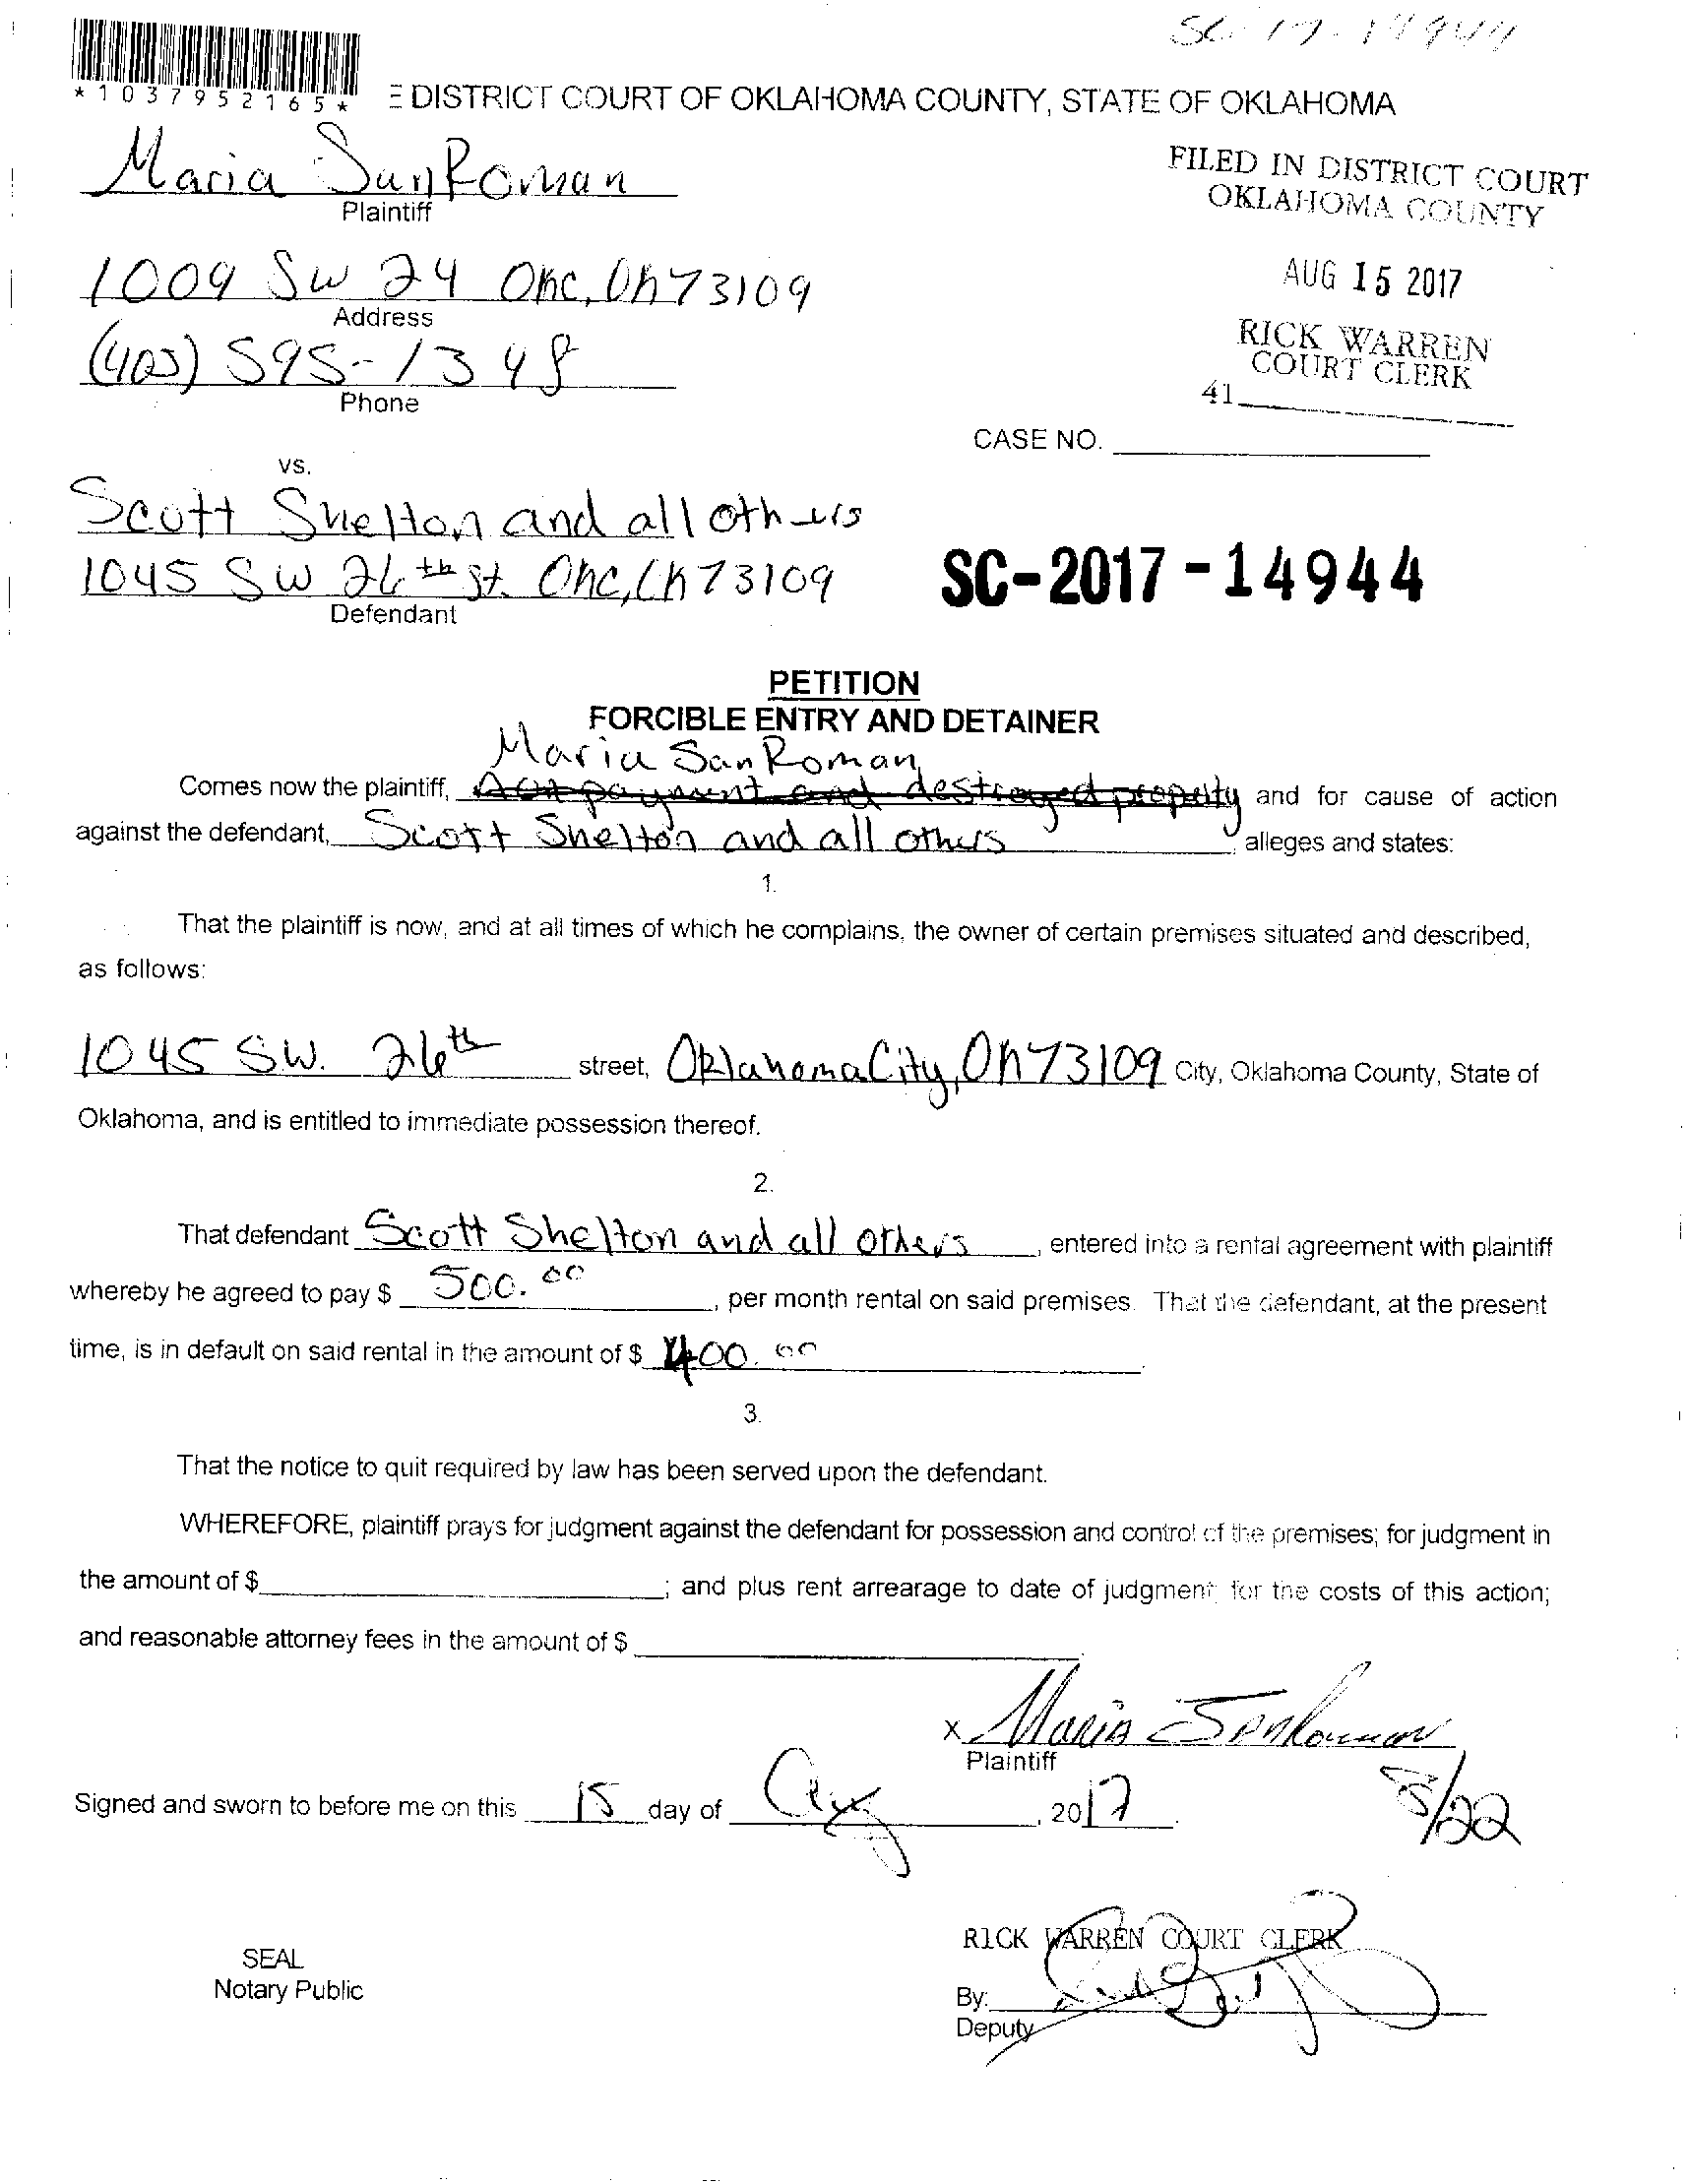 *1037952165*
E DISTRICT COURT OF OKLAHOMA COUNTY, STATE OF OKLAHOMA
Maria SanRoman
Plaintiff
FILED IN DISTRICT COURT
OKLAHOMA COUNTY
1009 SW 24 OKC, OK 73109
Address
AUG 15 2017
(405) 595-1348
Phone
RICK WARREN
COURT CLERK
41
CASE NO.
vs.
Scott Shelton and all others
1045 SW 26th st. OKC, OK 73109
Defendant
SC-2017-14944
PETITION
FORCIBLE ENTRY AND DETAINER
Maria SanRoman
Comes now the plaintiff, payment and destroyed property and for cause of action
against the defendant, Scott Shelton and all others alleges and states:
1.
That the plaintiff is now, and at all times of which he complains, the owner of certain premises situated and described,
as follows:
1045 SW. 26th street, Oklahoma City, OK 73109 City, Oklahoma County, State of
Oklahoma, and is entitled to immediate possession thereof.
2.
That defendant Scott Shelton and all others, entered into a rental agreement with plaintiff
whereby he agreed to pay $ 500.00, per month rental on said premises. That the defendant, at the present
time, is in default on said rental in the amount of $ 400.00.
3.
That the notice to quit required by law has been served upon the defendant.
WHEREFORE, plaintiff prays for judgment against the defendant for possession and control of the premises; for judgment in
the amount of $ ; and plus rent arrearage to date of judgment; for the costs of this action;
and reasonable attorney fees in the amount of $
x Maria SanRoman
Plaintiff
8/22
Signed and sworn to before me on this 15 day of Aug, 2017.
SEAL
Notary Public
RICK WARREN COURT CLERK
By:
Deputy